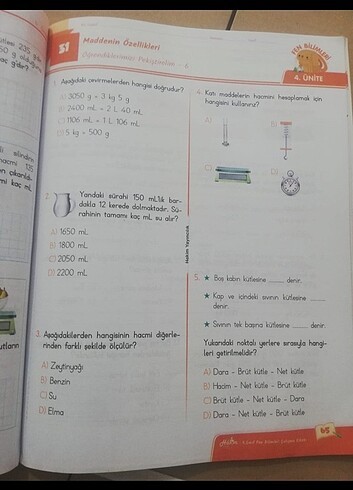 51
Maddenin Özellikleri
Öğrendiklerimizi Pekiştirelim - 4
FEN BİLİMLERİ
4. ÜNİTE
1. Aşağıdaki çevirmelerden hangisi doğrudur?
A) 3050 g = 3 kg 5 g
B) 2400 mL = 2 L 40 mL
C) 1106 mL = 1 L 106 mL
D) 5 kg = 500 g
2. Yandaki sürahi 150 mL'lik bar-
dakla 12 kerede dolmaktadır. Sü-
rahinin tamamı kaç mL su alır?
A) 1650 mL
B) 1800 mL
C) 2050 mL
D) 2200 mL
3. Aşağıdakilerden hangisinin hacmi diğerle-
rinden farklı şekilde ölçülür?
A) Zeytinyağı
B) Benzin
C) Su
D) Elma
Hakim Yayıncılık
4. Katı maddelerin hacmini hesaplamak için
hangisini kullanırız?
A)
B)
C)
D)
5. ★ Boş kabın kütlesine ........ denir.
★ Kap ve içindeki sıvının kütlesine ........
denir.
★ Sıvının tek başına kütlesine ........ denir.
Yukarıdaki noktalı yerlere sırasıyla hangi-
leri getirilmelidir?
A) Dara - Brüt kütle - Net kütle
B) Hacim - Net kütle - Brüt kütle
C) Brüt kütle - Net kütle - Dara
D) Dara - Net kütle - Brüt kütle
65